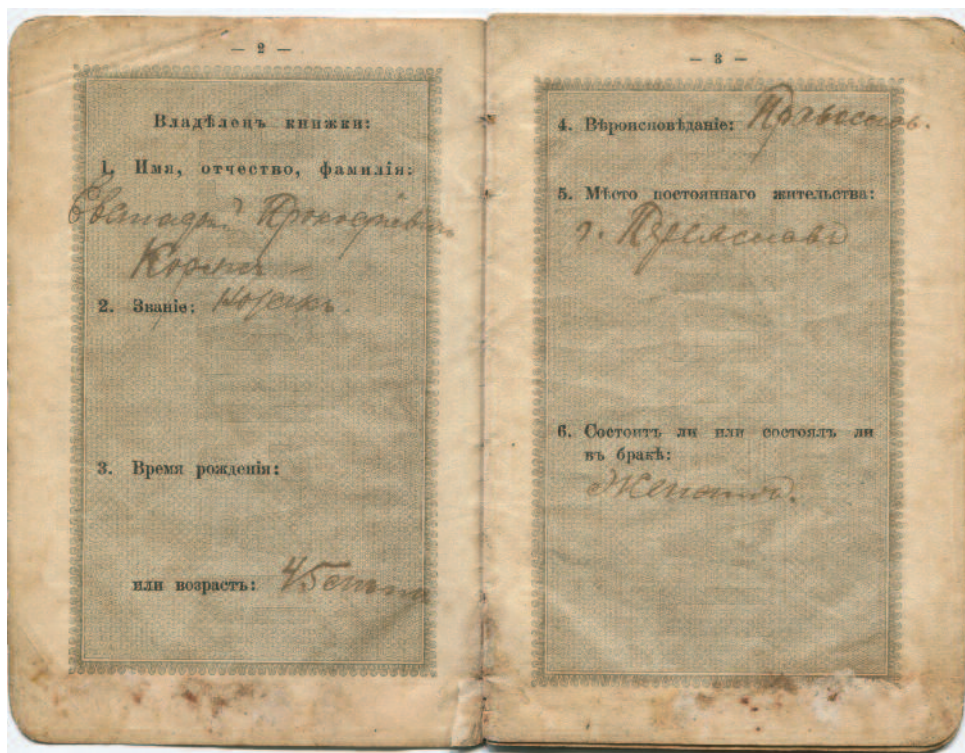 — 2 —
Владѣлецъ книжки:
1. Имя, отчество, фамилія:
Прокофіевичъ
2. Званіе: козакъ.
3. Время рожденія:
или возрастъ: 45
— 3 —
4. Вѣроисповѣданіе: Православ.
5. Мѣсто постояннаго жительства:
г. Переяславъ
6. Состоитъ ли или состоялъ ли
въ бракѣ:
Женатъ.